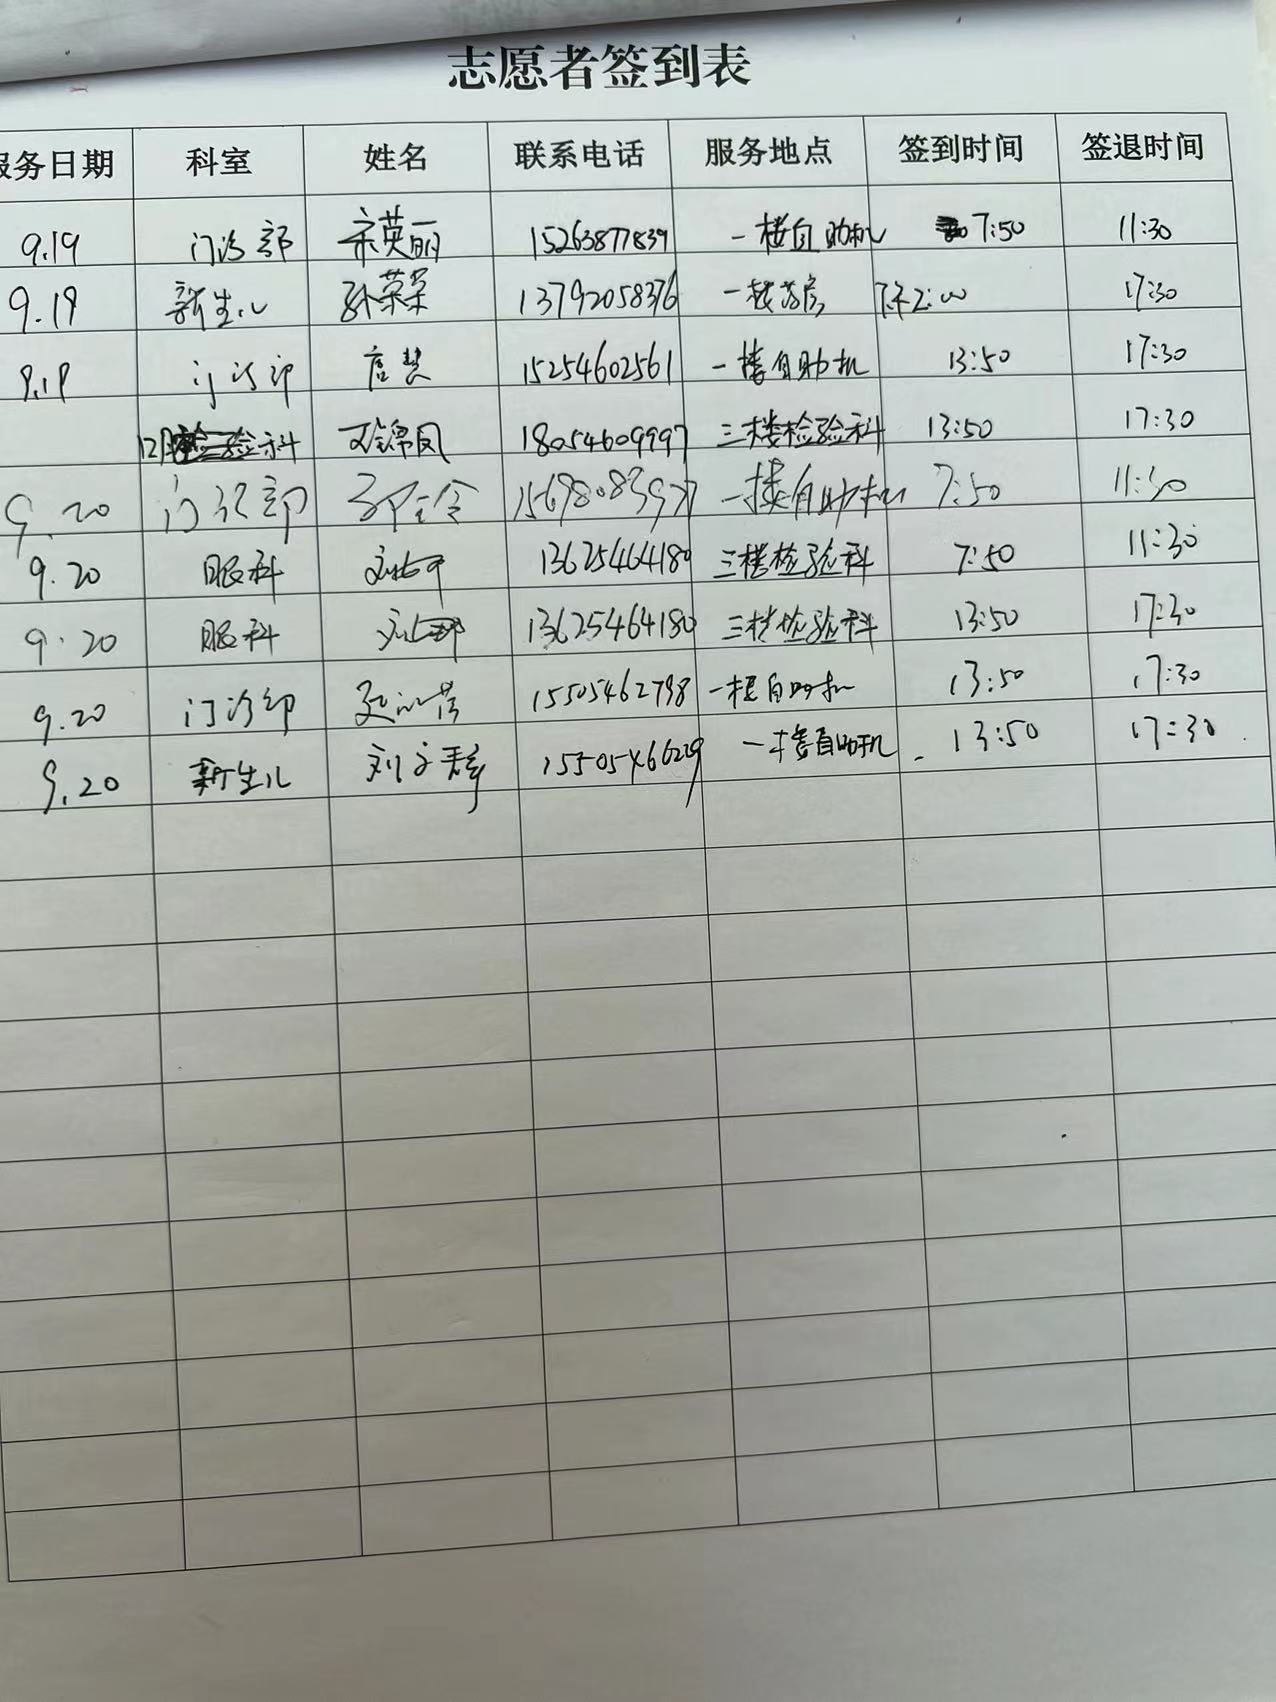 志愿者签到表
服务日期 科室 姓名 联系电话 服务地点 签到时间 签退时间
9.19 门诊部 宋英丽 15263877839 一楼自助机 7:50 11:30
9.19 新生儿 孙荣荣 13792058376 一楼药房 下午2:00 17:30
9.19 门诊部 唐慧 15254602561 一楼自助机 13:50 17:30
检验科 锦凤 18054609997 三楼检验科 13:50 17:30
9.20 门诊部 1569808397 一楼自助机 7:50 11:30
9.20 眼科 13625464180 三楼检验科 7:50 11:30
9.20 眼科 13625464180 三楼检验科 13:50 17:30
9.20 门诊部 15505462798 一楼自助机 13:50 17:30
9.20 新生儿 刘文静 一楼自助机 13:50 17:30